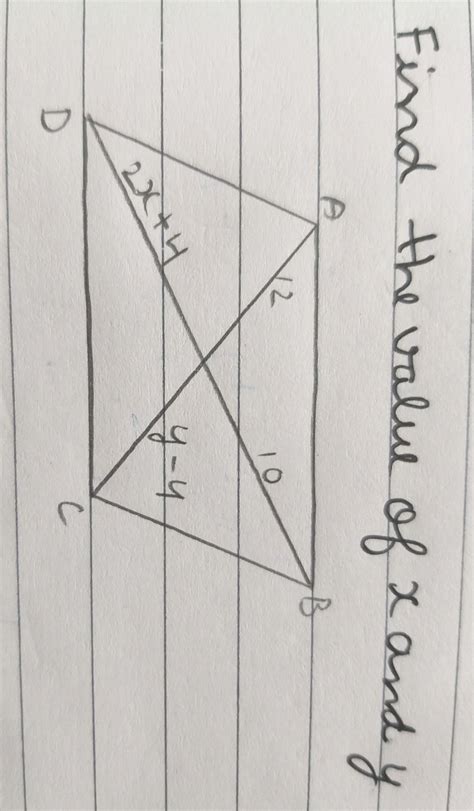 Find the value of x and y
A
B
12
10
2x+4
y-4
D
C